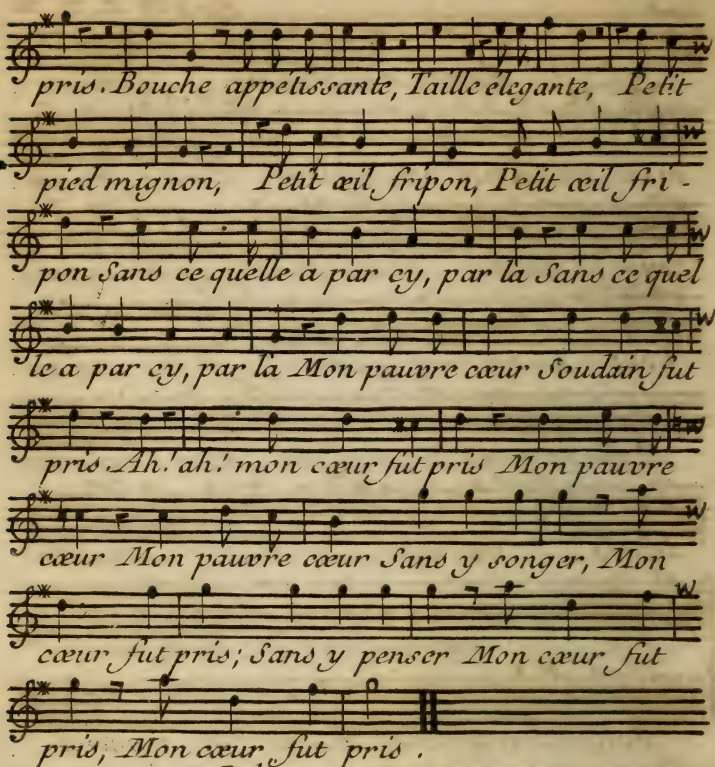 pris. Bouche appétissante, Taille élegante, Petit
pied mignon, Petit œil fripon, Petit œil fri -
pon Sans ce quelle a par cy, par la Sans ce quel
le a par cy, par la Mon pauvre cœur Soudain fut
pris. Ah! ah! mon cœur fut pris Mon pauvre
cœur Mon pauvre cœur Sans y songer, Mon
cœur fut pris; Sans y penser Mon cœur fut
pris, Mon cœur fut pris.